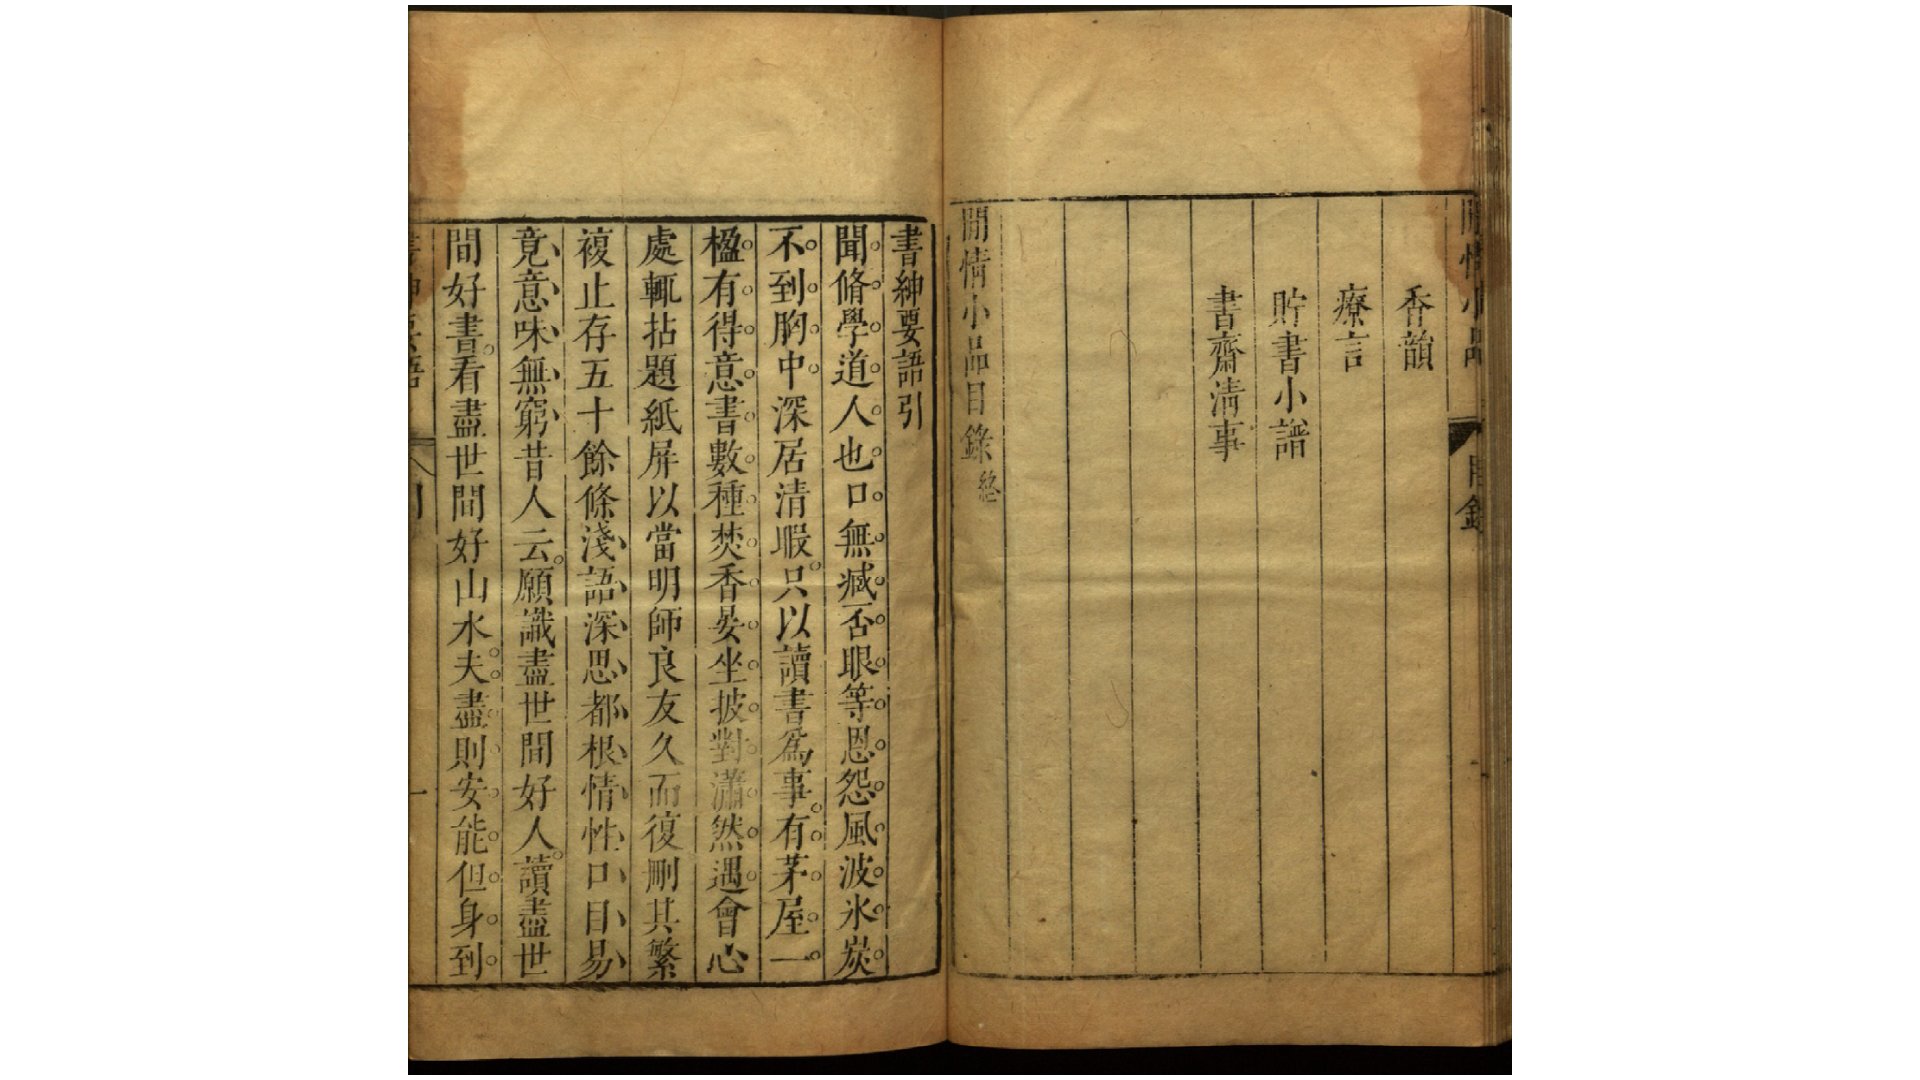 閒情小品 目錄
香韻
療言
貯書小譜
書齋清事
閒情小品目錄終
書紳要語引
聞脩學道人也口無臧否眼等恩怨風波氷炭
不到胸中深居清暇只以讀書爲事有茅屋一
楹有得意書數種焚香晏坐披對瀟然遇會心
處輒拈題紙屏以當明師良友久而復刪其繁
複止存五十餘條淺語深思都根情性口目易
竟意味無窮昔人云願識盡世間好人讀盡世
間好書看盡世間好山水夫盡則安能但身到